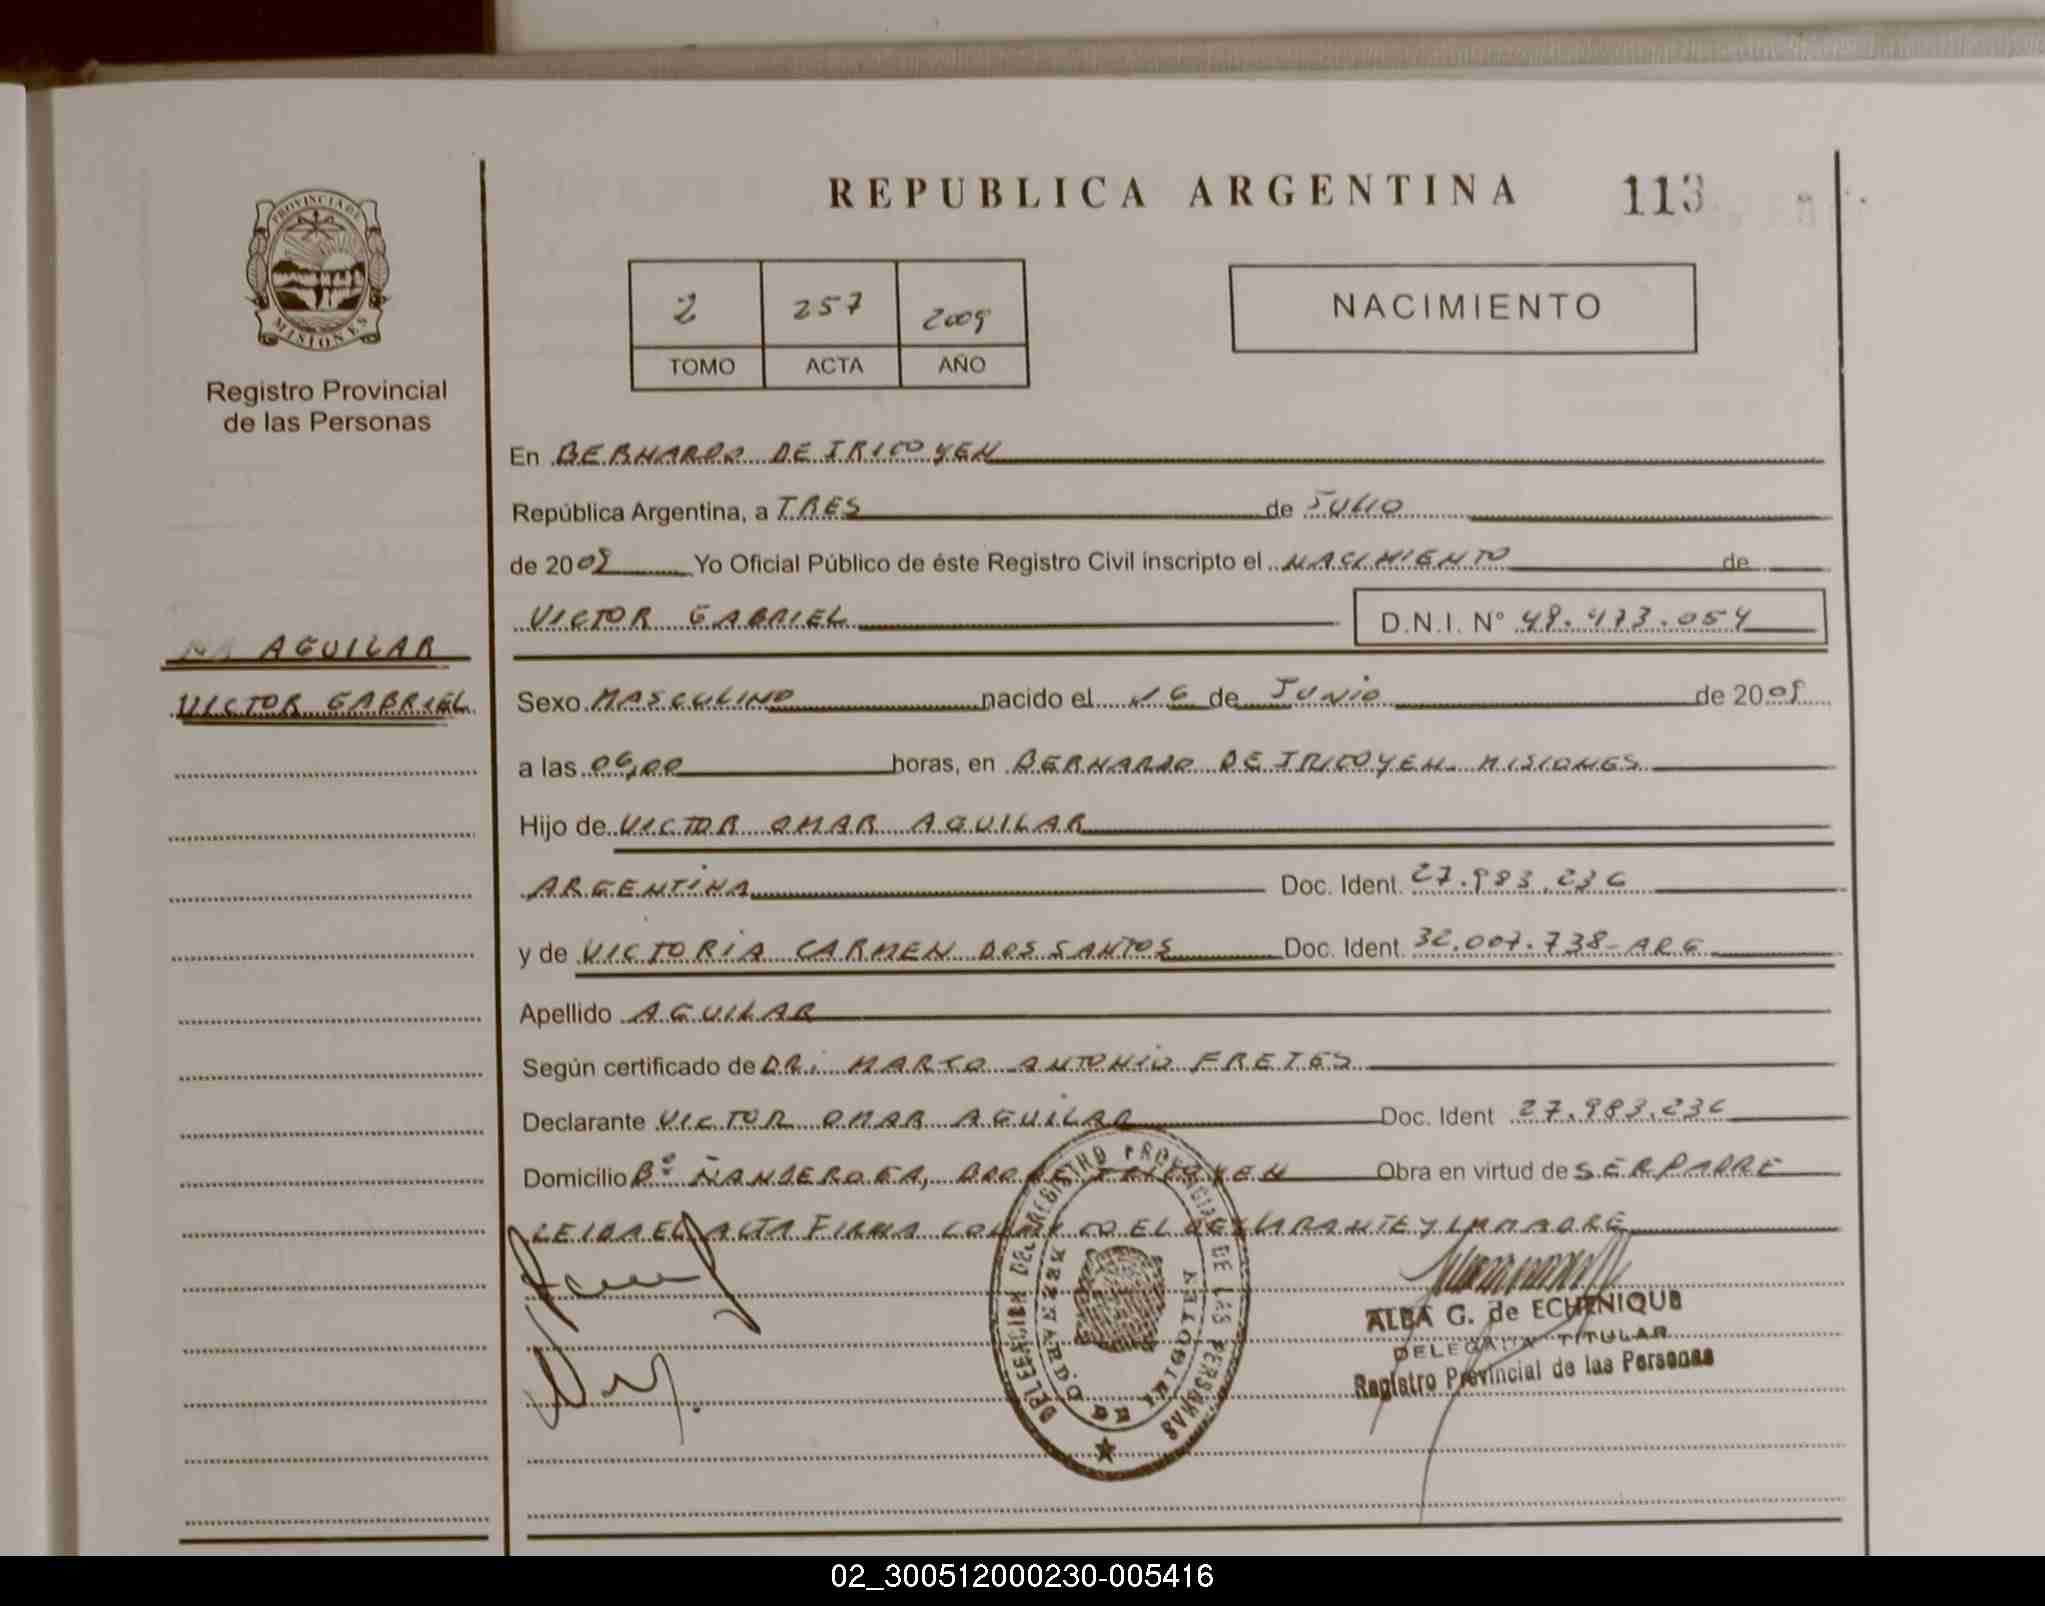 REPUBLICA ARGENTINA 113
PROVINCIA DE
MISIONES
Registro Provincial
de las Personas
2 257 2009
TOMO ACTA AÑO
NACIMIENTO
En BERNARDO DE IRIGOYEN
República Argentina, a TRES de JULIO
de 2009 Yo Oficial Público de éste Registro Civil inscripto el NACIMIENTO de
VICTOR GABRIEL D.N.I. N° 49.473.054
AGUILAR
VICTOR GABRIEL
Sexo MASCULINO nacido el 16 de JUNIO de 2009
a las 06,00 horas, en BERNARDO DE IRIGOYEN. MISIONES
Hijo de VICTOR OMAR AGUILAR
ARGENTINA Doc. Ident. 27.983.236
y de VICTORIA CARMEN DOS SANTOS Doc. Ident. 32.007.738-ARG
Apellido AGUILAR
Según certificado de DR. MARCO ANTONIO FRETES
Declarante VICTOR OMAR AGUILAR Doc. Ident 27.983.236
Domicilio B° ÑANDEROGA, BDO DE IRIGOYEN Obra en virtud de SER PADRE
LEIDA EL ACTA FIRMA CONMIGO EL DECLARANTE Y LA MADRE
DELEGACION DEL REGISTRO PROVINCIAL DE LAS PERSONAS
BERNARDO DE IRIGOYEN
ALBA G. de ECHENIQUE
DELEGADA TITULAR
Registro Provincial de las Personas
02_300512000230-005416